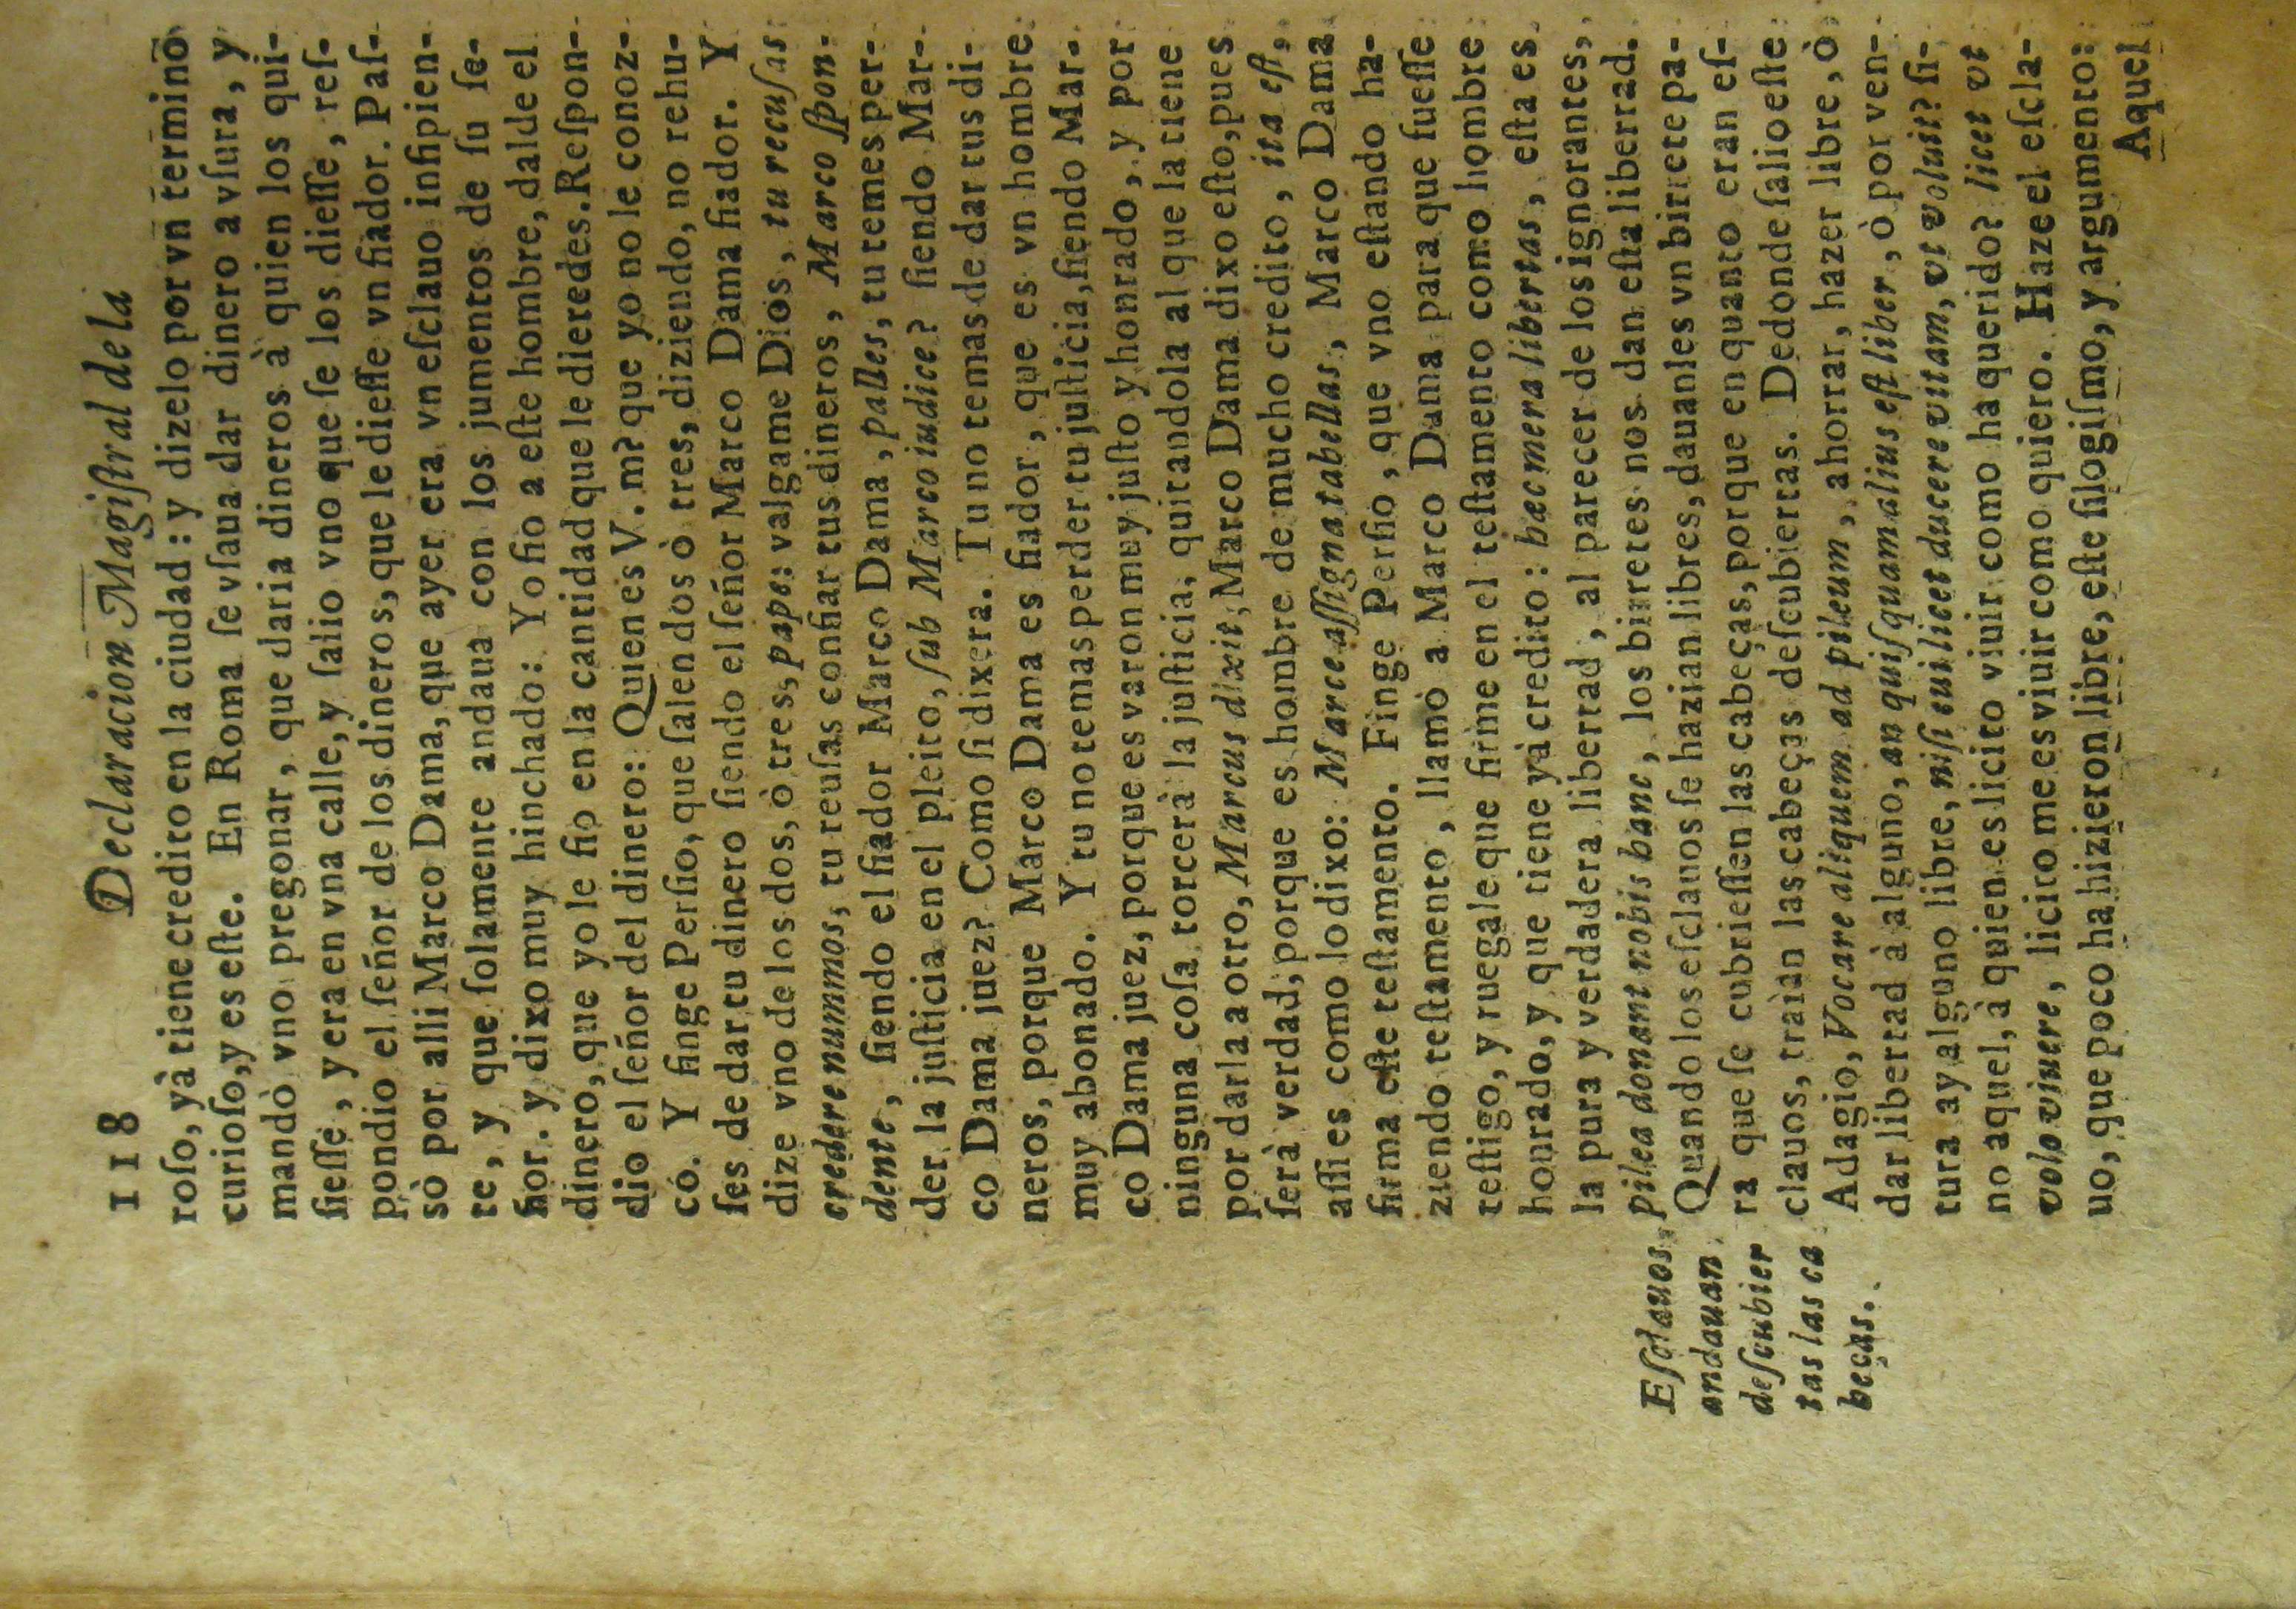 118 Declaracion Magiſtral de la
roſo, yà tiene credito en la ciudad: y dizelo por vn termino
curioſo, y es eſte. En Roma ſe vſaua dar dinero a vſura, y
mandò vno pregonar, que daria dineros à quien los qui-
ſieſſe, y era en vna calle, y ſalio vno que ſe los dieſſe, reſ-
pondio el ſeñor de los dineros, que le dieſſe vn fiador. Paſ-
sò por alli Marco Dama, que ayer era vn eſclauo inſipien-
te, y que ſolamente andaua con los jumentos de ſu ſe-
ñor. y dixo muy hinchado: Yo fio a eſte hombre, dalde el
dinero, que yo le fio en la cantidad que le dieredes. Reſpon-
dio el ſeñor del dinero: Quien es V. m? que yo no le conoz-
co. Y finge Perſio, que ſalen dos ò tres, diziendo, no rehu-
ſes de dar tu dinero ſiendo el ſeñor Marco Dama fiador. Y
dize vno de los dos, ò tres, pape: valgame Dios, tu recuſas
credere nummos, tu reuſas confiar tus dineros, Marco ſpon-
dente, ſiendo el fiador Marco Dama, palles, tu temes per-
der la juſticia en el pleito, ſub Marco iudice? ſiendo Mar-
co Dama juez? Como ſi dixera. Tu no temas de dar tus di-
neros, porque Marco Dama es fiador, que es vn hombre
muy abonado. Y tu no temas perder tu juſticia, ſiendo Mar-
co Dama juez, porque es varon muy juſto y honrado, y por
ninguna coſa torcerà la juſticia, quitandola al que la tiene
por darla a otro, Marcus dixit, Marco Dama dixo eſto, pues
ſerà verdad, porque es hombre de mucho credito, ita eſt,
aſſi es como lo dixo: Marce aſſigna tabellas, Marco Dama
firma eſte teſtamento. Finge Perſio, que vno eſtando ha-
ziendo teſtamento, llamò a Marco Dama para que fueſſe
teſtigo, y ruegale que firme en el teſtamento como hombre
honrado, y que tiene yà credito: hæc mera libertas, eſta es
la pura y verdadera libertad, al parecer de los ignorantes,
pilea donant nobis hanc, los birretes nos dan eſta libertad.
Quando los eſclauos ſe hazian libres, dauanles vn birrete pa-
ra que ſe cubrieſſen las cabeças, porque en quanto eran eſ-
clauos, traìan las cabeças deſcubiertas. De donde ſalio eſte
Adagio, Vocare aliquem ad pileum, ahorrar, hazer libre, ò
dar libertad à alguno, an quiſquam alius eſt liber, ò por ven-
tura ay alguno libre, niſi cui licet ducere vitam, vt voluit? ſi-
no aquel, à quien es licito viuir como ha querido? licet vt
volo viuere, licito me es viuir como quiero. Haze el eſcla-
uo, que poco ha hizieron libre, eſte ſilogiſmo, y argumento:
Aquel
Eſclauos
andauan
deſcubier
tas las ca
beças.